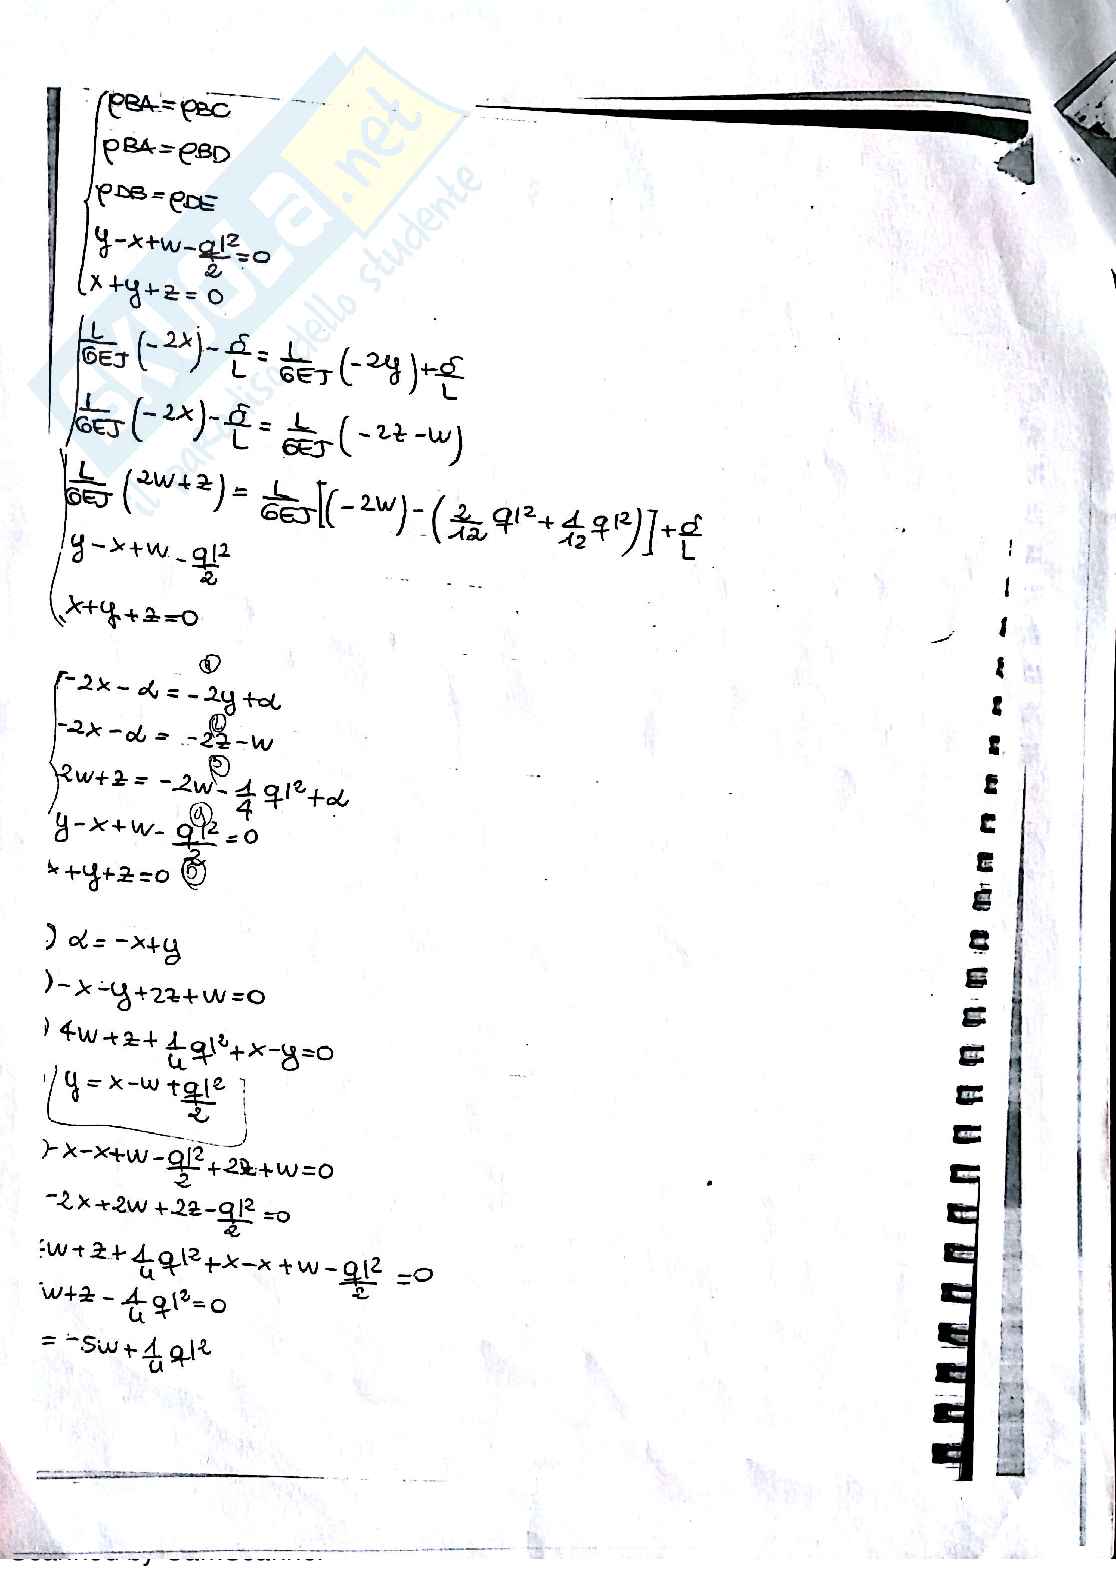 φBA = φBC
φBA = φBD
φDB = φDE
y-x+w-ql²/2=0
x+y+z=0
L/6EJ (-2x)-δ/L = L/6EJ (-2y)+δ/L
L/6EJ (-2x)-δ/L = L/6EJ (-2z-w)
L/6EJ (2w+z) = L/6EJ [(-2w)-(2/12 ql²+1/12 ql²)]+δ/L
y-x+w-ql²/2
x+y+z=0
-2x-α = -2y+α ①
-2x-α = -2z-w ②
2w+z = -2w-1/4 ql²+α ③
y-x+w-ql²/2=0 ④
x+y+z=0 ⑤
) α=-x+y
) -x-y+2z+w=0
) 4w+z+1/4 ql²+x-y=0
y=x-w+ql²/2
) -x-x+w-ql²/2+2z+w=0
-2x+2w+2z-ql²/2=0
w+z+1/4 ql²+x-x+w-ql²/2=0
w+z-1/4 ql²=0
= -5w+1/4 ql²
SKUOLA.net
il paradiso dello studente
Scanned by CamScanner